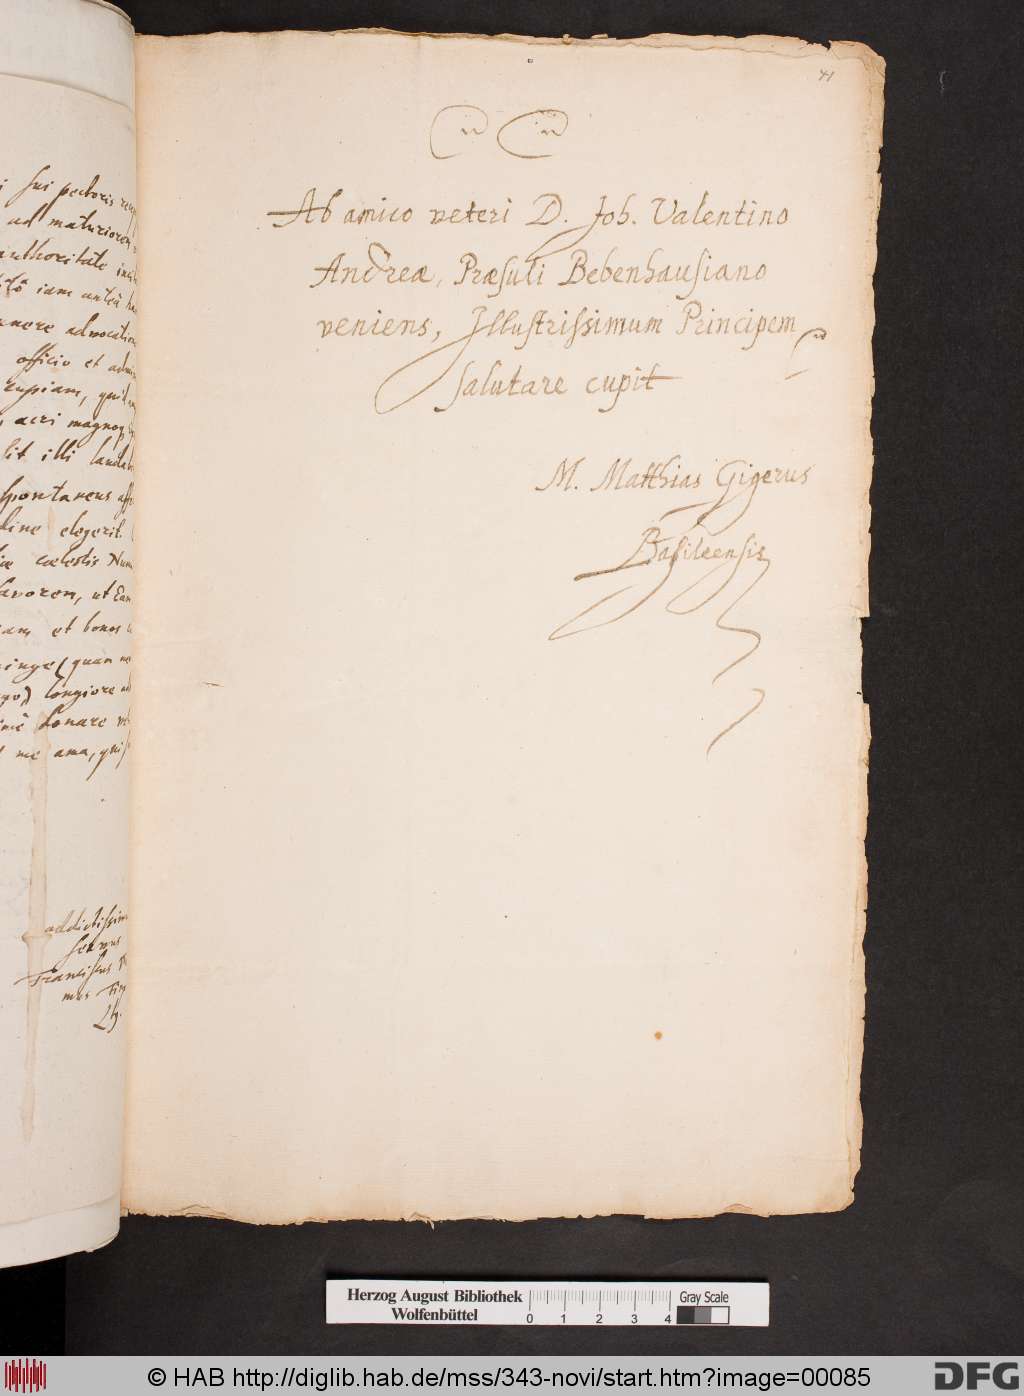 sui pectoris
ad maturiorem
authoritate
iam antea
advocation
officio et
cupiam, quid
acri magnoq
sit illi
spontaneus
elegerit
cœlestis
favorem, ut
et bonos
(quàm
longiore
donare
me ama,
addictissim
servus
Franciscus
41
Ab amico veteri D. Joh. Valentino
Andreæ, Præsuli Bebenhausiano
veniens, Illustrissimum Principem
salutare cupit
M. Matthias Gigerus
Basileensis
Herzog August Bibliothek
Wolfenbüttel
Gray Scale
0 1 2 3 4
© HAB http://diglib.hab.de/mss/343-novi/start.htm?image=00085
DFG